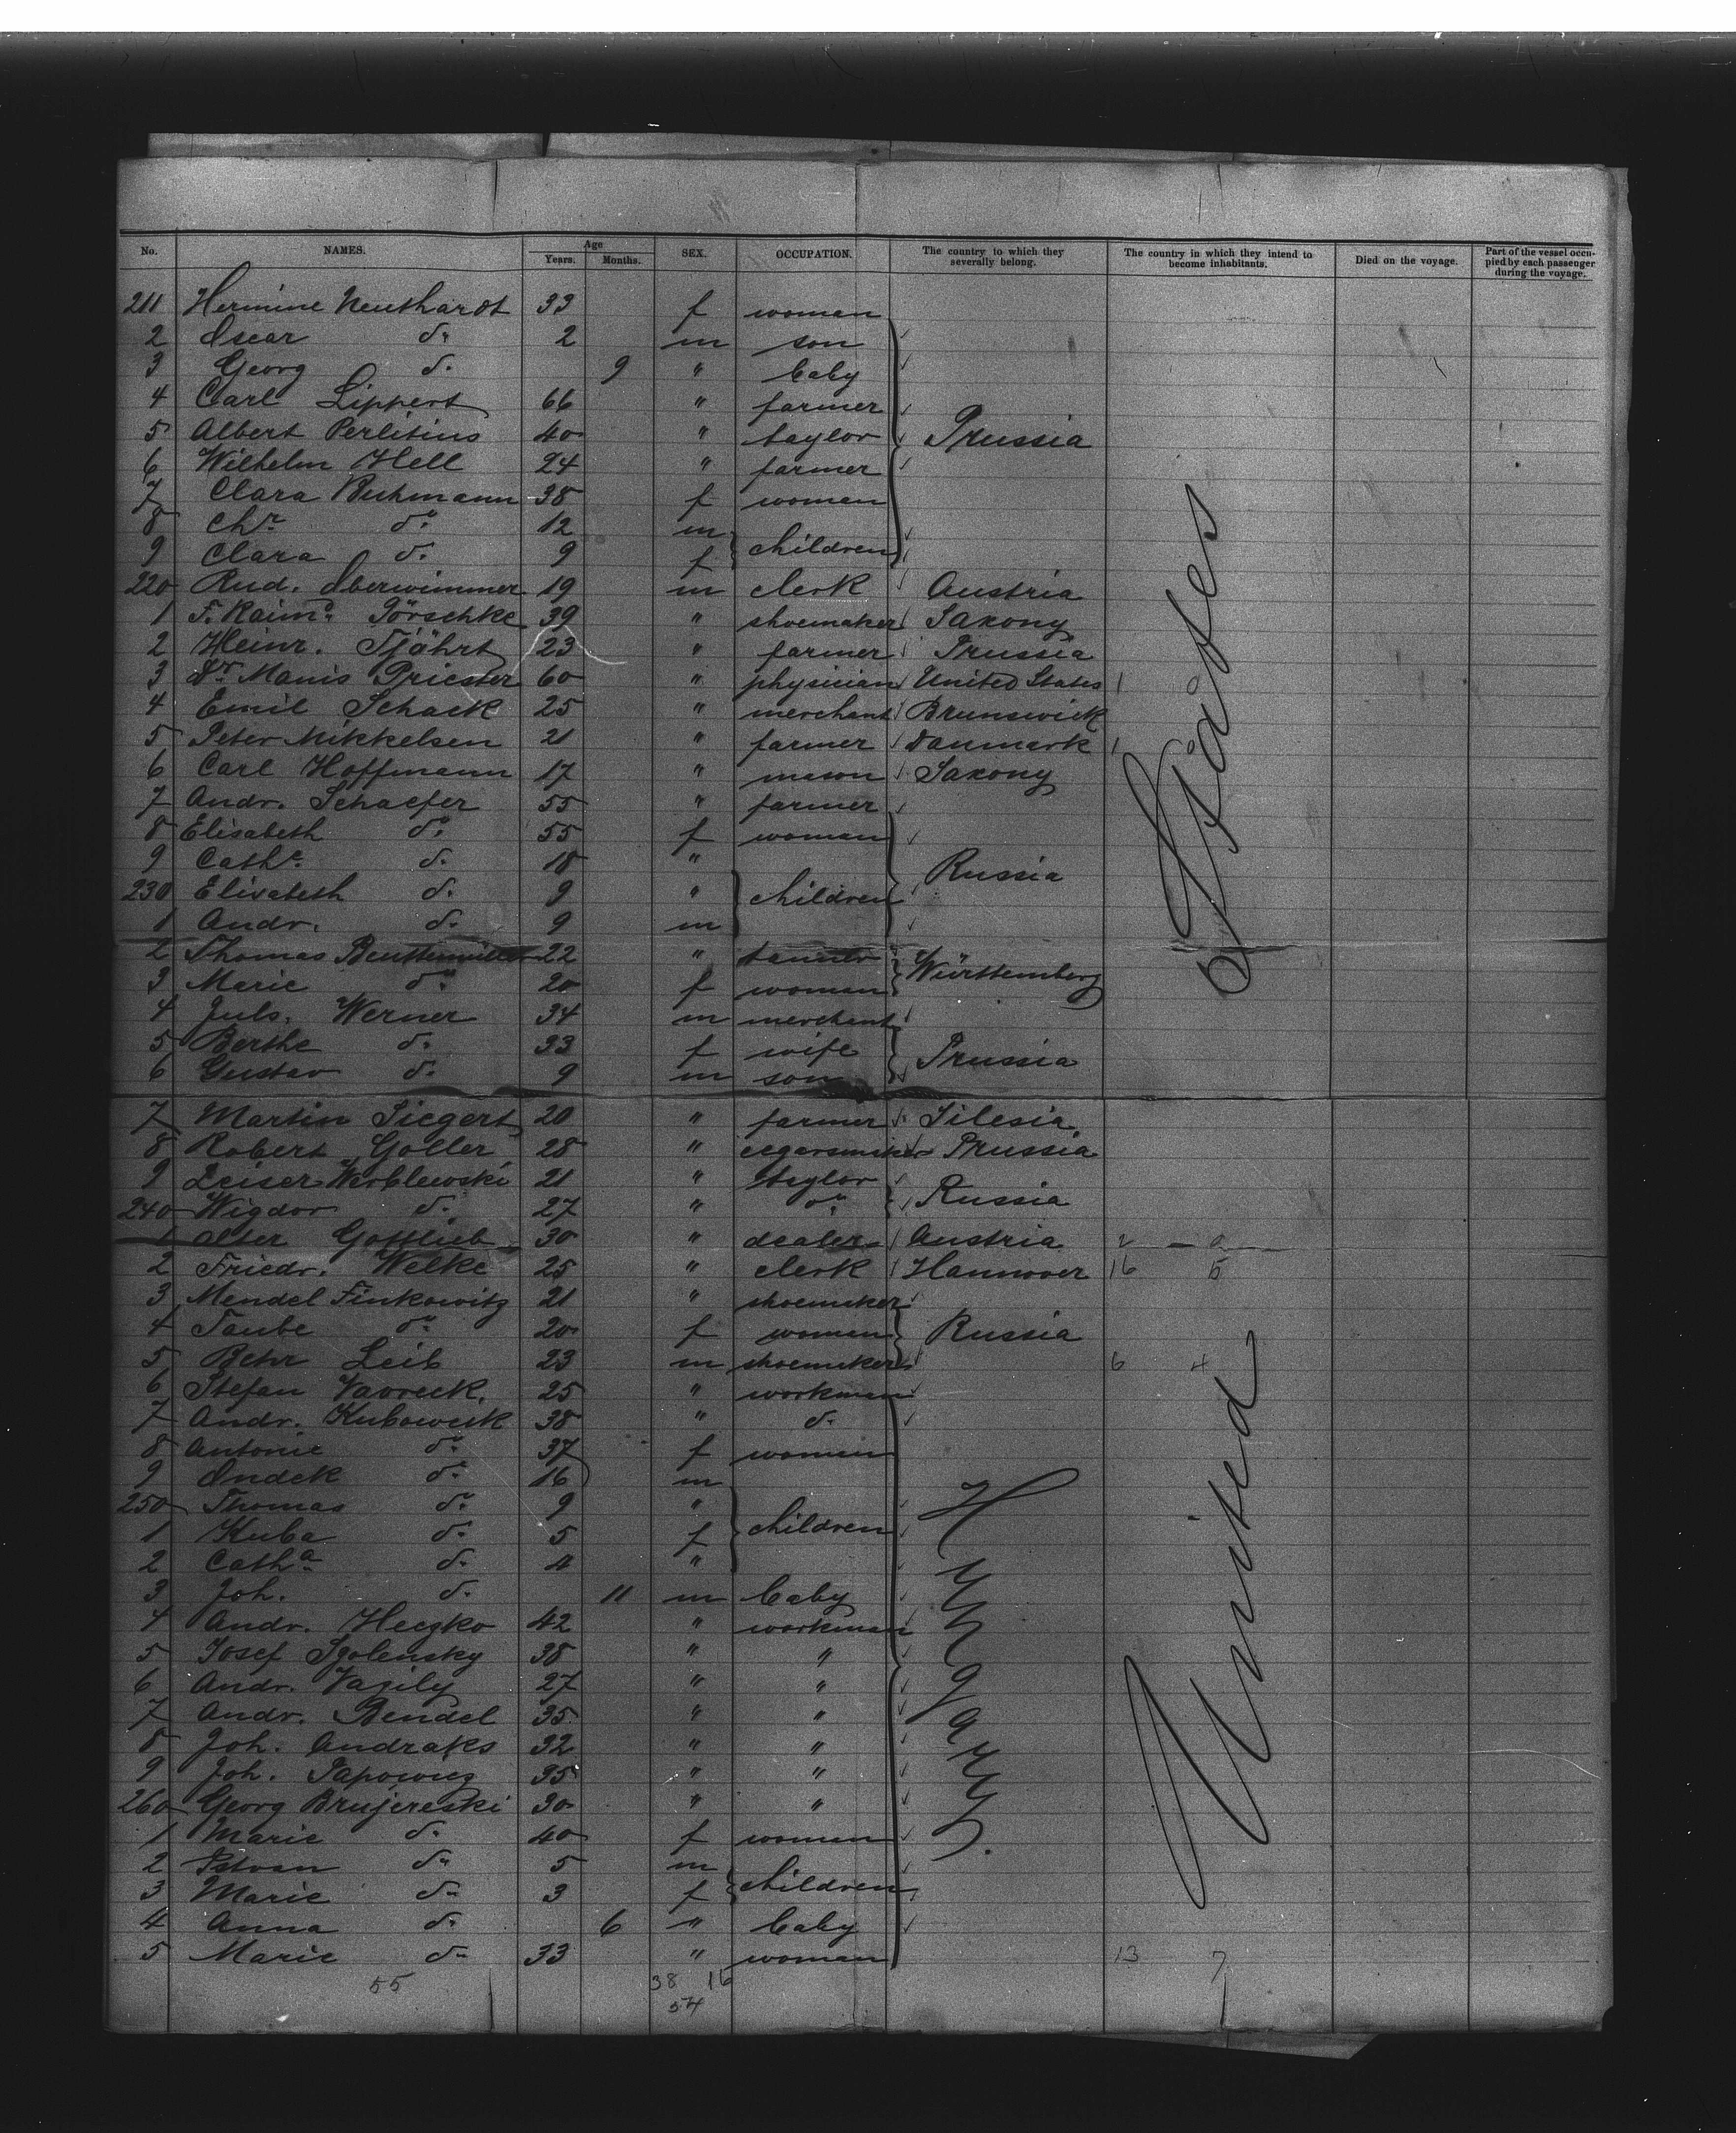 No. NAMES. Age Years. Months. SEX. OCCUPATION. The country to which they severally belong. The country in which they intend to become inhabitants. Died on the voyage. Part of the vessel occupied by each passenger during the voyage.
211 Hermine Neuthardt 33 f woman
2 Oscar do 2 m son
3 Georg do 9 " baby
4 Carl Lippert 66 " farmer
5 Albert Perlitius 40 " taylor Prussia
6 Wilhelm Hell 24 " farmer
7 Clara Puhmann 38 f woman
8 Chr. do 12 m children
9 Clara do 9 f
220 Rud. Oberwimmer 19 m clerk Austria
1 F. Raimd. Pörschke 39 " shoemaker Saxony
2 Heinr. Tjährt 23 " farmer Prussia
3 Dr. Manis Priester 60 " physician United States 1 0
4 Emil Schack 25 " merchant Brunswick
5 Peter Mikkelsen 21 " farmer Danmark 1
6 Carl Hoffmann 17 " mason Saxony
7 Andr. Schaefer 55 " farmer
8 Elisabeth do 55 f woman
9 Cathe. do 18 " Russia
230 Elisabeth do 9 " children
1 Andr. do 9 m
2 Thomas Beuttenmiller 22 " tanner Württemberg
3 Marie do 20 f woman
4 Juls. Werner 34 m merchant
5 Berthe do 33 f wife Prussia
6 Gustav do 9 m son
7 Martin Siegert 20 " farmer Silesia
8 Robert Goller 28 " cegarsmaker Prussia
9 Leiser Werblewski 21 " taylor Russia
240 Wigdor do 27 " do
1 Alter Gottlieb 30 " dealer Austria 2 - 0
2 Friedr. Welke 25 " clerk Hannover 16 5
3 Mendel Finkowitz 21 " shoemaker
4 Taube do 20 f women Russia
5 Behr Leib 23 m shoemaker 6 4
6 Stefan Vavreck. 25 " workman
7 Andr. Kubaweck 38 " do
8 Antonie do 37 f women
9 Ondek do 16 m
250 Thomas do 9 " children
1 Kuba do 5 f
2 Catha. do 4 "
3 Joh. do 11 m baby
4 Andr. Heczko 42 " workman
5 Josef Sgolensky 38 " "
6 Andr. Vazily 27 " "
7 Andr. Bendel 35 " "
8 Joh. Andraks 32 " "
9 Joh. Papowicz 35 " "
260 Georg Brujereski 30 " "
1 Marie do 40 f women
2 Istvan do 5 m children
3 Marie do 3 f
4 Anna do 6 " baby
5 Marie do 33 " woman 13 7
Hungary.
United States
55 38 16
54